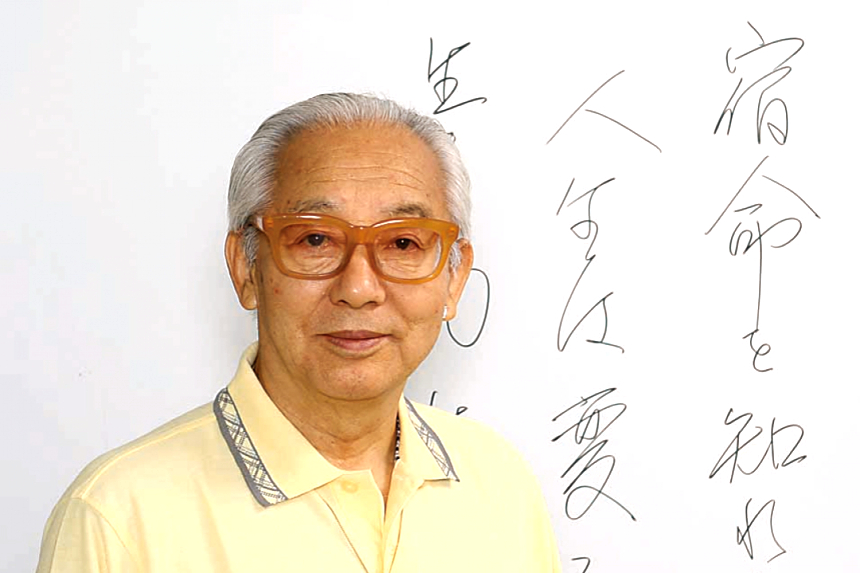 宿命を知れ
人生は変
生